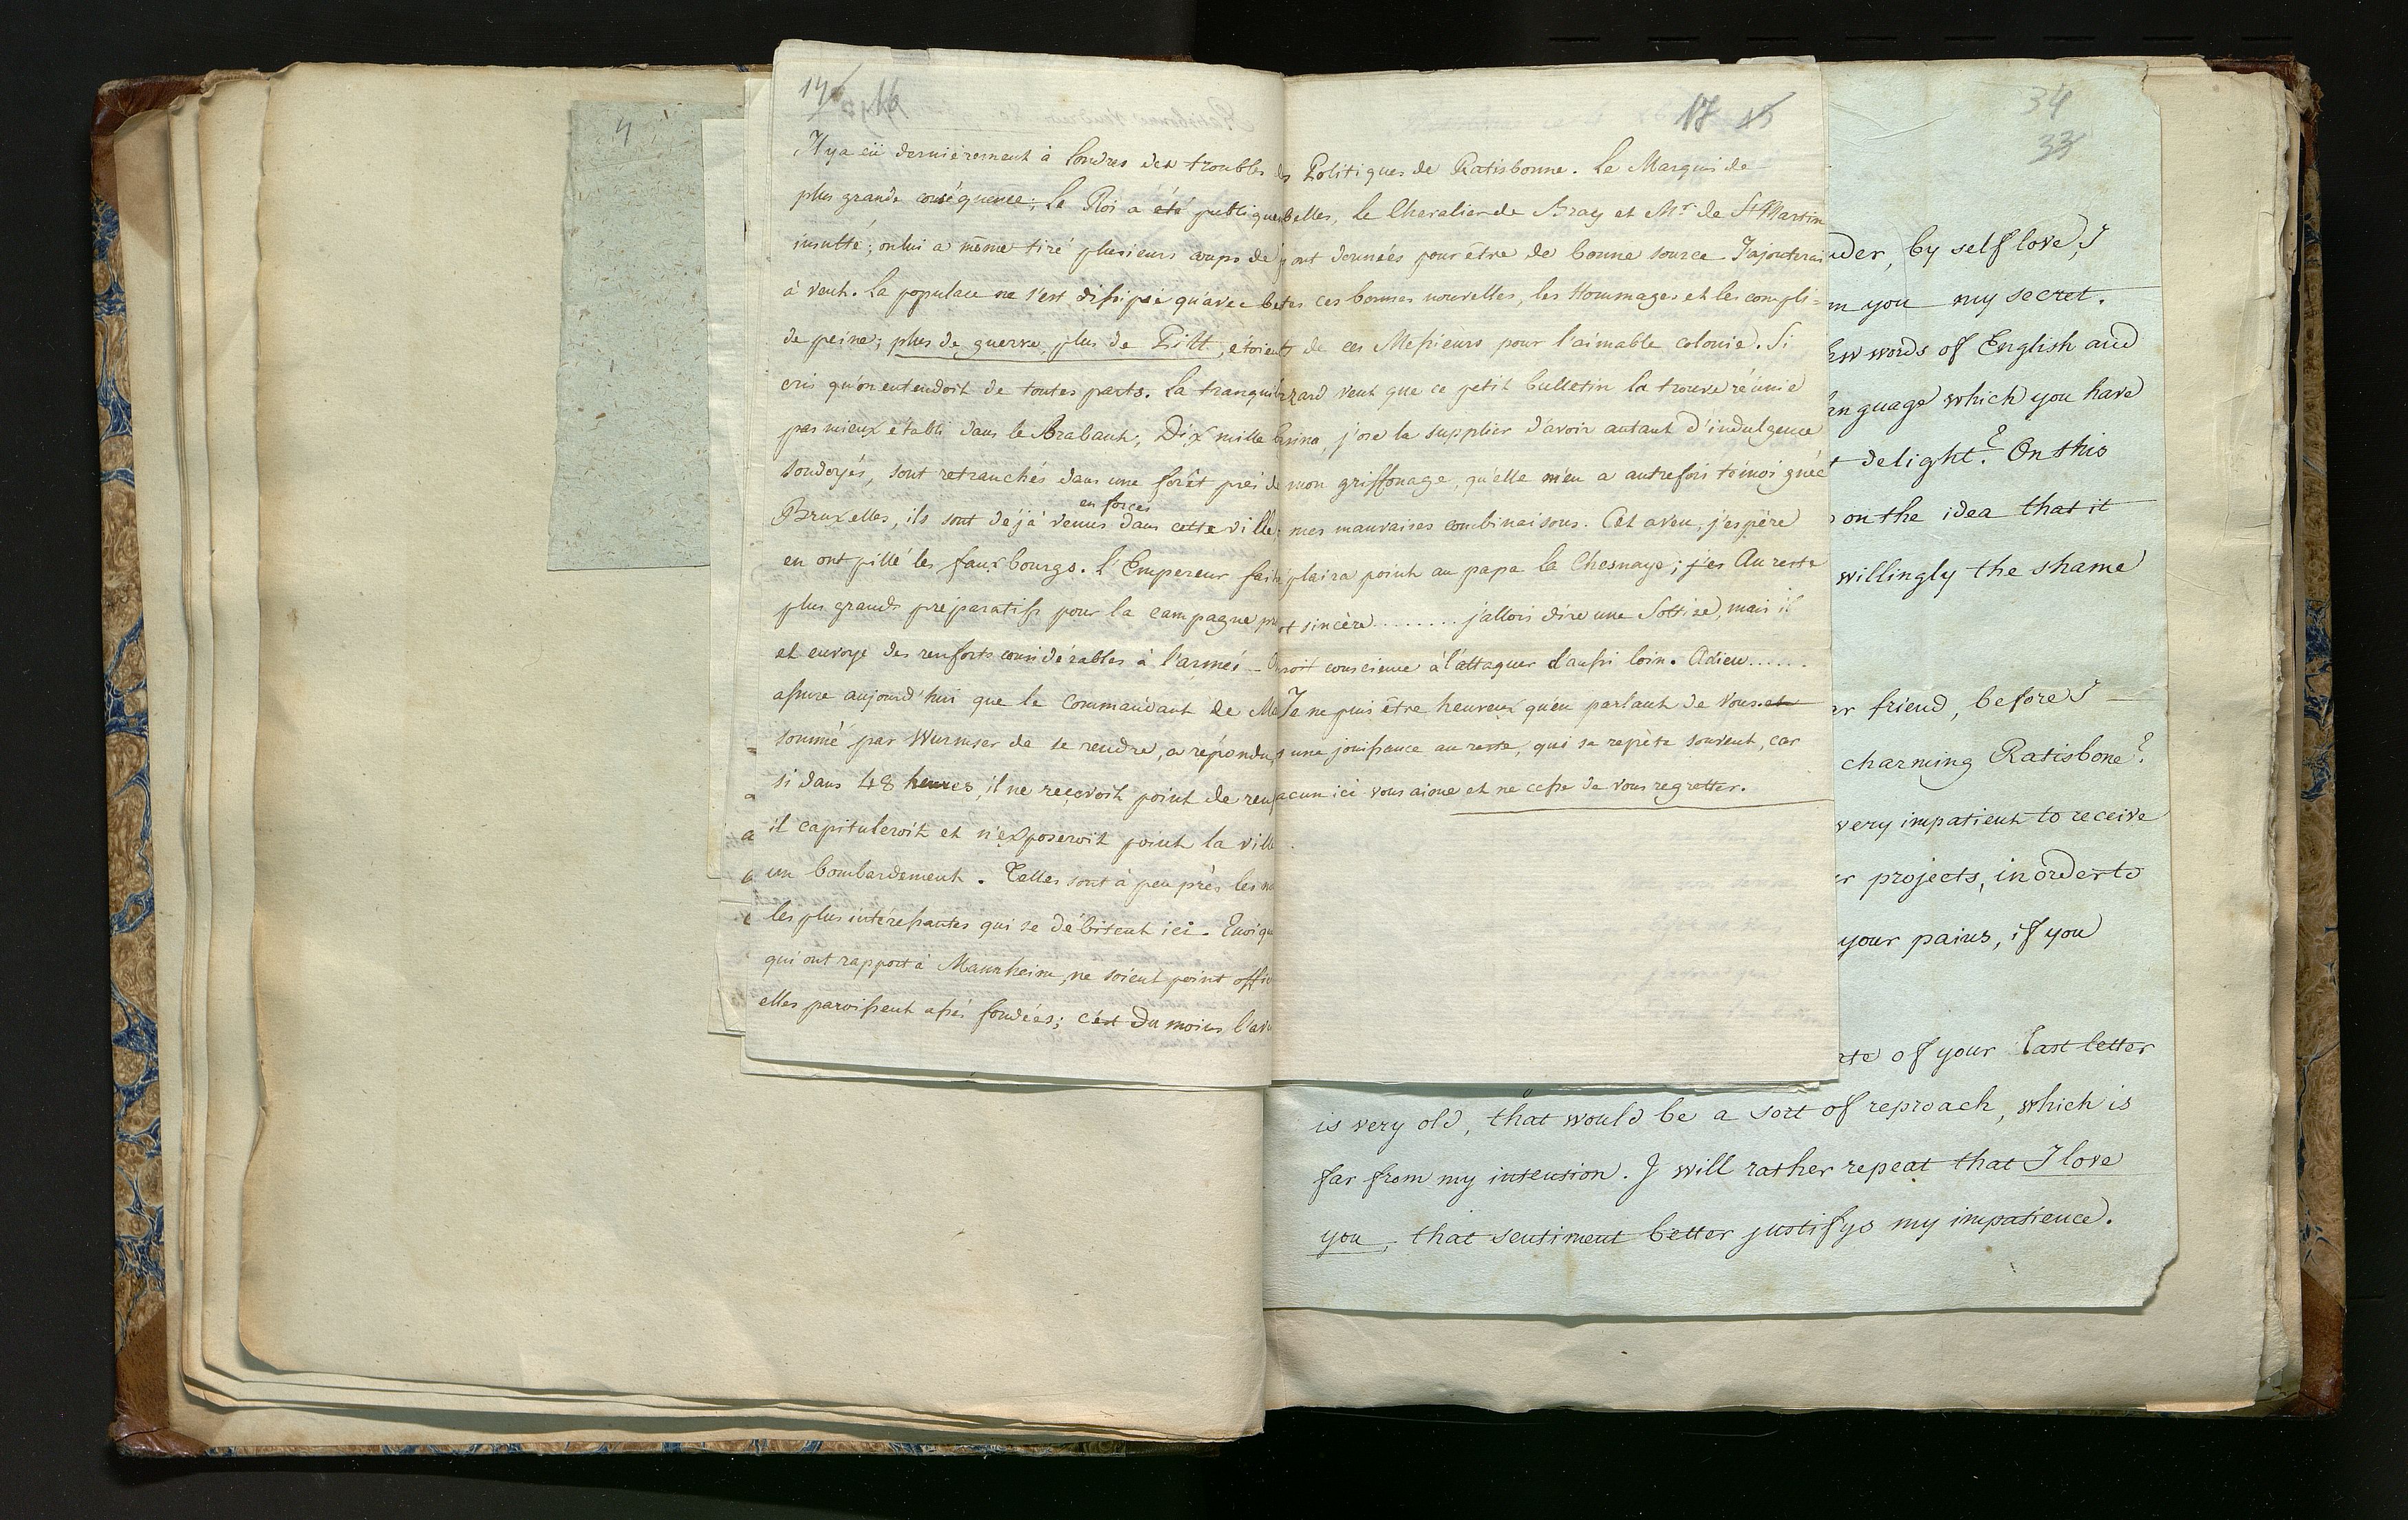 4
14 16
Il y a eü dernièrement à londres des troubles
plus grande conséquence; Le Roi a été publique
insulté; on lui a même tiré plusieurs coups de
à vent. La populace ne s'est dissipée qu'avec be
de peine; plus de guerre, plus de Pitt, étoient
cris qu'on entendoit de toutes parts. La tranquil
pas mieux établi dans le Brabant; Dix mille
soudoyés, sont retranchés dans une forêt près de
en forces
Bruxelles, ils sont déjà venus dans cette ville;
en ont pillé les fauxbourgs. L'Empereur fait
plus grands préparatifs pour la campagne pr
et envoye des renforts considérables à l'armée _
assure aujourd'hui que le Commandant de Ma
sommé par Wurmser de se rendre, a répondu,
si dans 48 heures, il ne reçevoit point de renf
il capituleroit et n'exposeroit point la ville
un bombardement. Telles sont à peu près les no
les plus intéressantes qui se débitent ici. Quoiqu
qui ont rapport à Mannheim, ne soient point offic
elles paroissent assés fondées; c'est du moins l'avi
17 15
Politiques de Ratisbonne. Le Marquis de
belles, le Chevalier de Bray et Mr. de St Martin
ont données pour être de bonne source. J'ajouterai
tes ces bonnes nouvelles, les Hommages et les compli=
de ces Messieurs pour l'aimable colonie. Si
zard veut que ce petit bulletin la trouve réunie
rino, j'ose la supplier d'avoir autant d'indulgence
mon griffonage, qu'elle m'en a autrefois témoignée
mes mauvaises combinaisons. Cet aveu, j'espère
plaira point au papa la Chesnaye; j'es Au reste
st sincère ......... j'allois dire une Sottise, mais il
roit conscience à l'attaquer d'aussi loin. Adieu......
Je ne puis être heureux qu'en parlant de Vous. et
une jouissance au reste, qui se repète souvent, car
acun ici vous aime et ne cesse de vous regretter.
34
33
uder, by self love, I
m you my secret.
few words of English and
language which you have
t delight? On this
on the idea that it
willingly the shame
ar friend, before I
charming Ratisbone?
very impatient to receive
r projects, in order to
your pains, if you
ate of your last letter
is very old, that would be a sort of reproach, which is
far from my intension. I will rather repeat that I love
you, that sentiment better justifys my impatience.